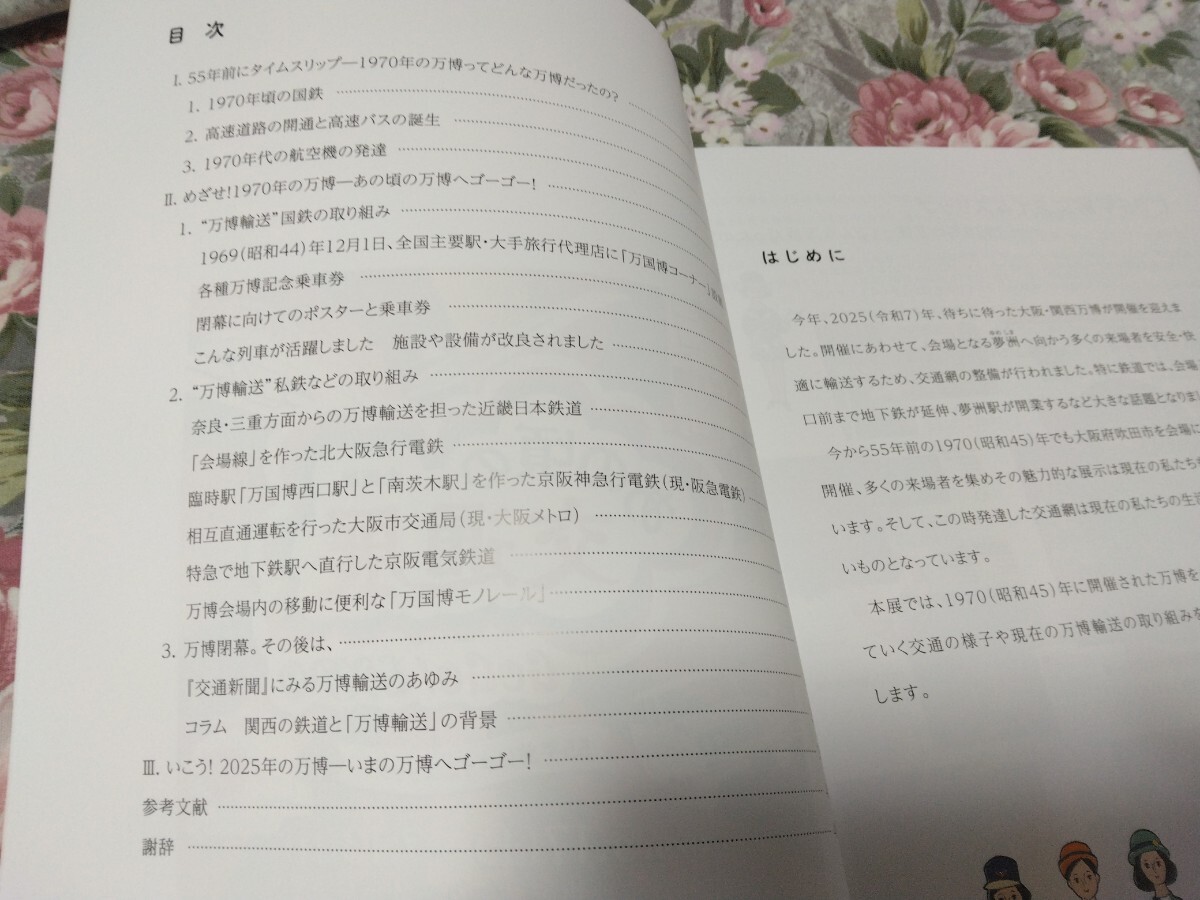 目次
I. 55年前にタイムスリップ―1970年の万博ってどんな万博だったの?
1. 1970年頃の国鉄
2. 高速道路の開通と高速バスの誕生
3. 1970年代の航空機の発達
II. めざせ!1970年の万博―あの頃の万博へゴーゴー!
1. “万博輸送”国鉄の取り組み
1969(昭和44)年12月1日、全国主要駅・大手旅行代理店に「万国博コーナー」
各種万博記念乗車券
閉幕に向けてのポスターと乗車券
こんな列車が活躍しました 施設や設備が改良されました
2. “万博輸送”私鉄などの取り組み
奈良・三重方面からの万博輸送を担った近畿日本鉄道
「会場線」を作った北大阪急行電鉄
臨時駅「万国博西口駅」と「南茨木駅」を作った京阪神急行電鉄(現・阪急電鉄)
相互直通運転を行った大阪市交通局(現・大阪メトロ)
特急で地下鉄駅へ直行した京阪電気鉄道
万博会場内の移動に便利な「万国博モノレール」
3. 万博閉幕。その後は、
『交通新聞』にみる万博輸送のあゆみ
コラム 関西の鉄道と「万博輸送」の背景
III. いこう! 2025年の万博―いまの万博へゴーゴー!
参考文献
謝辞
はじめに
今年、2025(令和7)年、待ちに待った大阪・関西万博が開催を迎えま
した。開催にあわせて、会場となる夢洲へ向かう多くの来場者を安全・快
適に輸送するため、交通網の整備が行われました。特に鉄道では、会場
口前まで地下鉄が延伸、夢洲駅が開業するなど大きな話題となりま
今から55年前の1970(昭和45)年でも大阪府吹田市を会場に
開催、多くの来場者を集めその魅力的な展示は現在の私たち
います。そして、この時発達した交通網は現在の私たちの生活
いものとなっています。
本展では、1970(昭和45)年に開催された万博を
ていく交通の様子や現在の万博輸送の取り組みを
します。